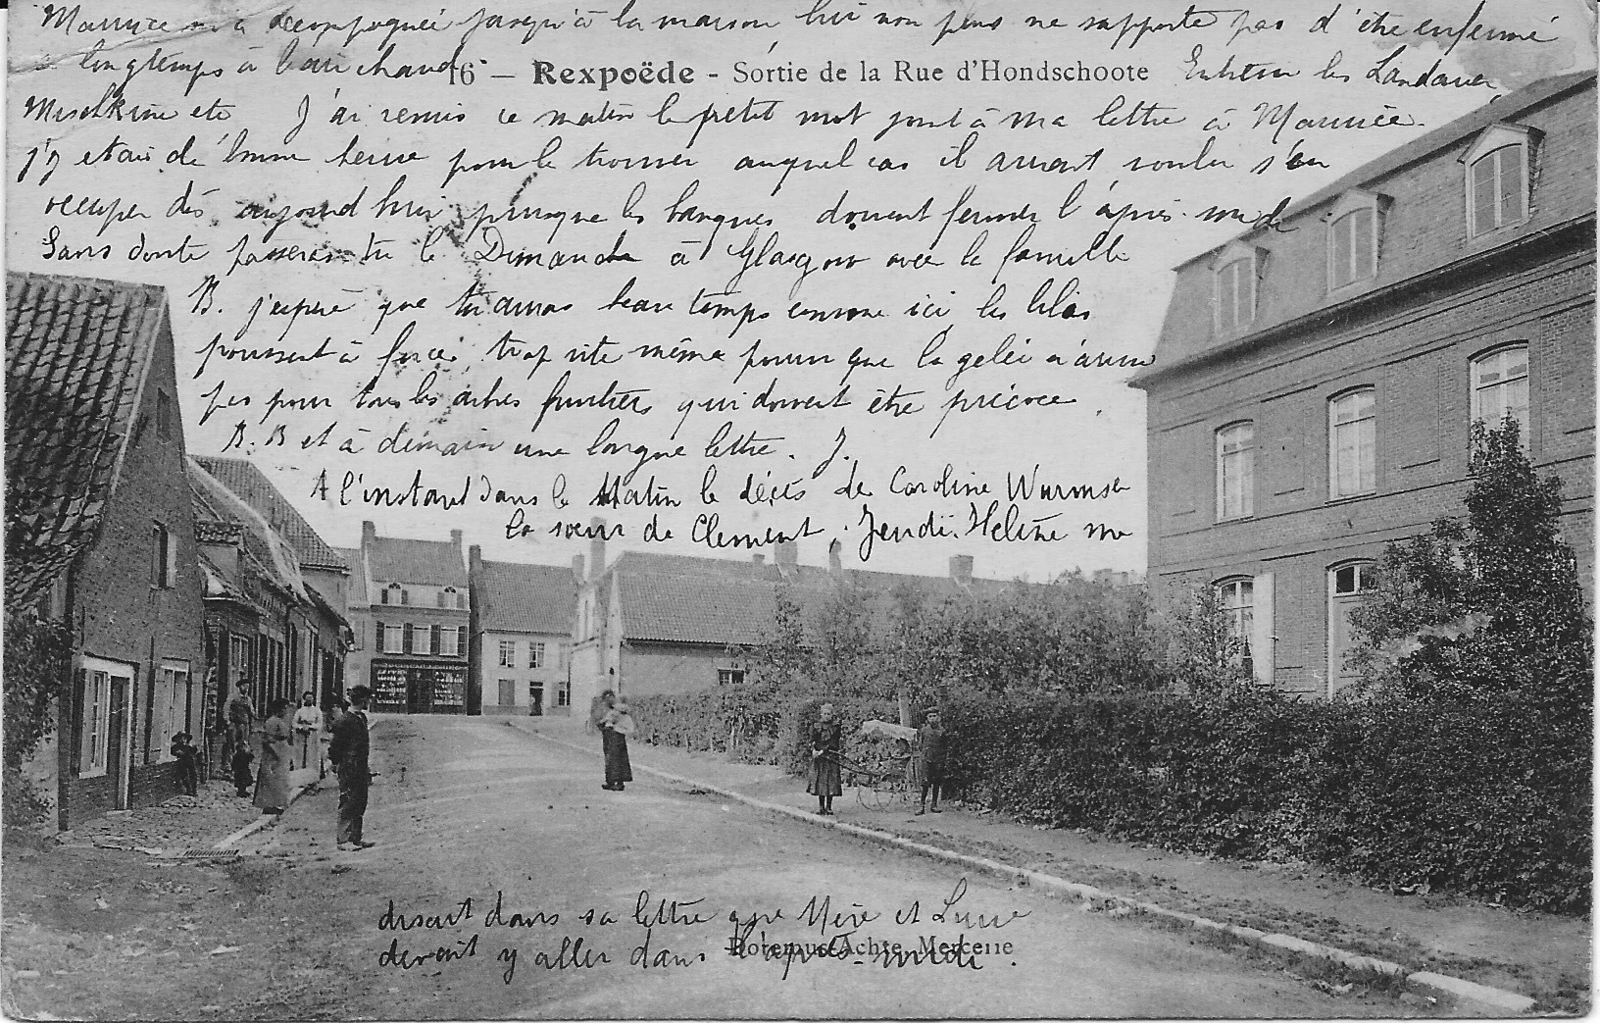 Maurice m'a accompagnée jusqu'à la maison, lui non plus ne supporte pas d'être enfermé
si longtemps à l'air chaud.
16 — Rexpoëde - Sortie de la Rue d'Hondschoote
les Landauer,
Mischkine etc J'ai remis ce matin le petit mot joint à ma lettre à Maurice.
j'y étais de bonne heure pour le trouver auquel cas il aurait voulu s'en
occuper dès aujourd'hui puisque les banques doivent fermer l'après-midi
Sans doute passeras-tu le Dimanche à Glasgow avec la famille
B. j'espère que tu auras beau temps comme ici les lilas
poussent à force, trop vite même pourvu que la gelée n'arrive
pas pour tous les arbres fruitiers qui doivent être précoce.
B. B et à demain une longue lettre. J.
A l'instant dans le Matin le décès de Caroline Wurmser
la sœur de Clement, Jeudi. Helène me
disait dans sa lettre que Mère et Lucie
devait y aller dans l'après-midi.